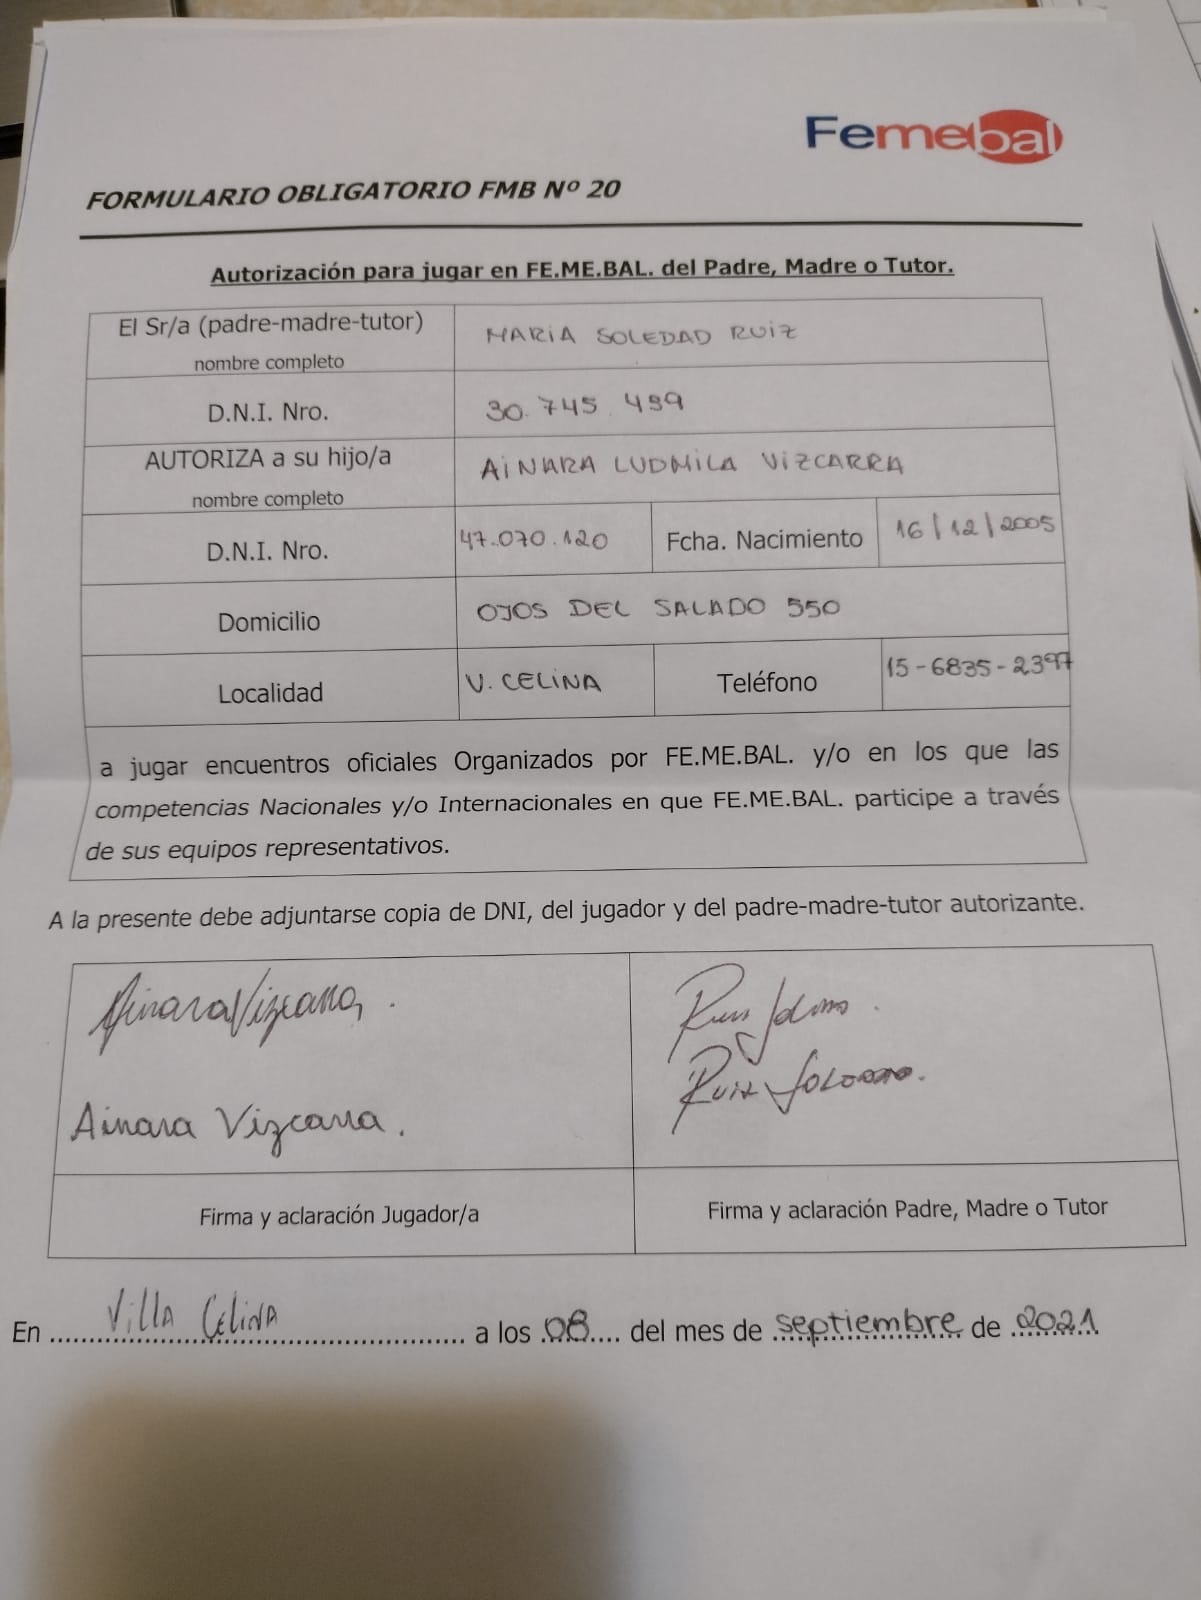 Femebal
FORMULARIO OBLIGATORIO FMB Nº 20
Autorización para jugar en FE.ME.BAL. del Padre, Madre o Tutor.
El Sr/a (padre-madre-tutor)
nombre completo
MARIA SOLEDAD RUIZ
D.N.I. Nro.
30.745.499
AUTORIZA a su hijo/a
nombre completo
AINARA LUDMILA VIZCARRA
D.N.I. Nro.
47.070.120
Fcha. Nacimiento
16/12/2005
Domicilio
OJOS DEL SALADO 550
Localidad
V. CELINA
Teléfono
15-6835-2397
a jugar encuentros oficiales Organizados por FE.ME.BAL. y/o en los que las
competencias Nacionales y/o Internacionales en que FE.ME.BAL. participe a través
de sus equipos representativos.
A la presente debe adjuntarse copia de DNI, del jugador y del padre-madre-tutor autorizante.
Ainara Vizcarra.
Ainara Vizcarra.
Ruiz
Ruiz
Firma y aclaración Jugador/a
Firma y aclaración Padre, Madre o Tutor
En Villa Celina a los 08 del mes de septiembre de 2021